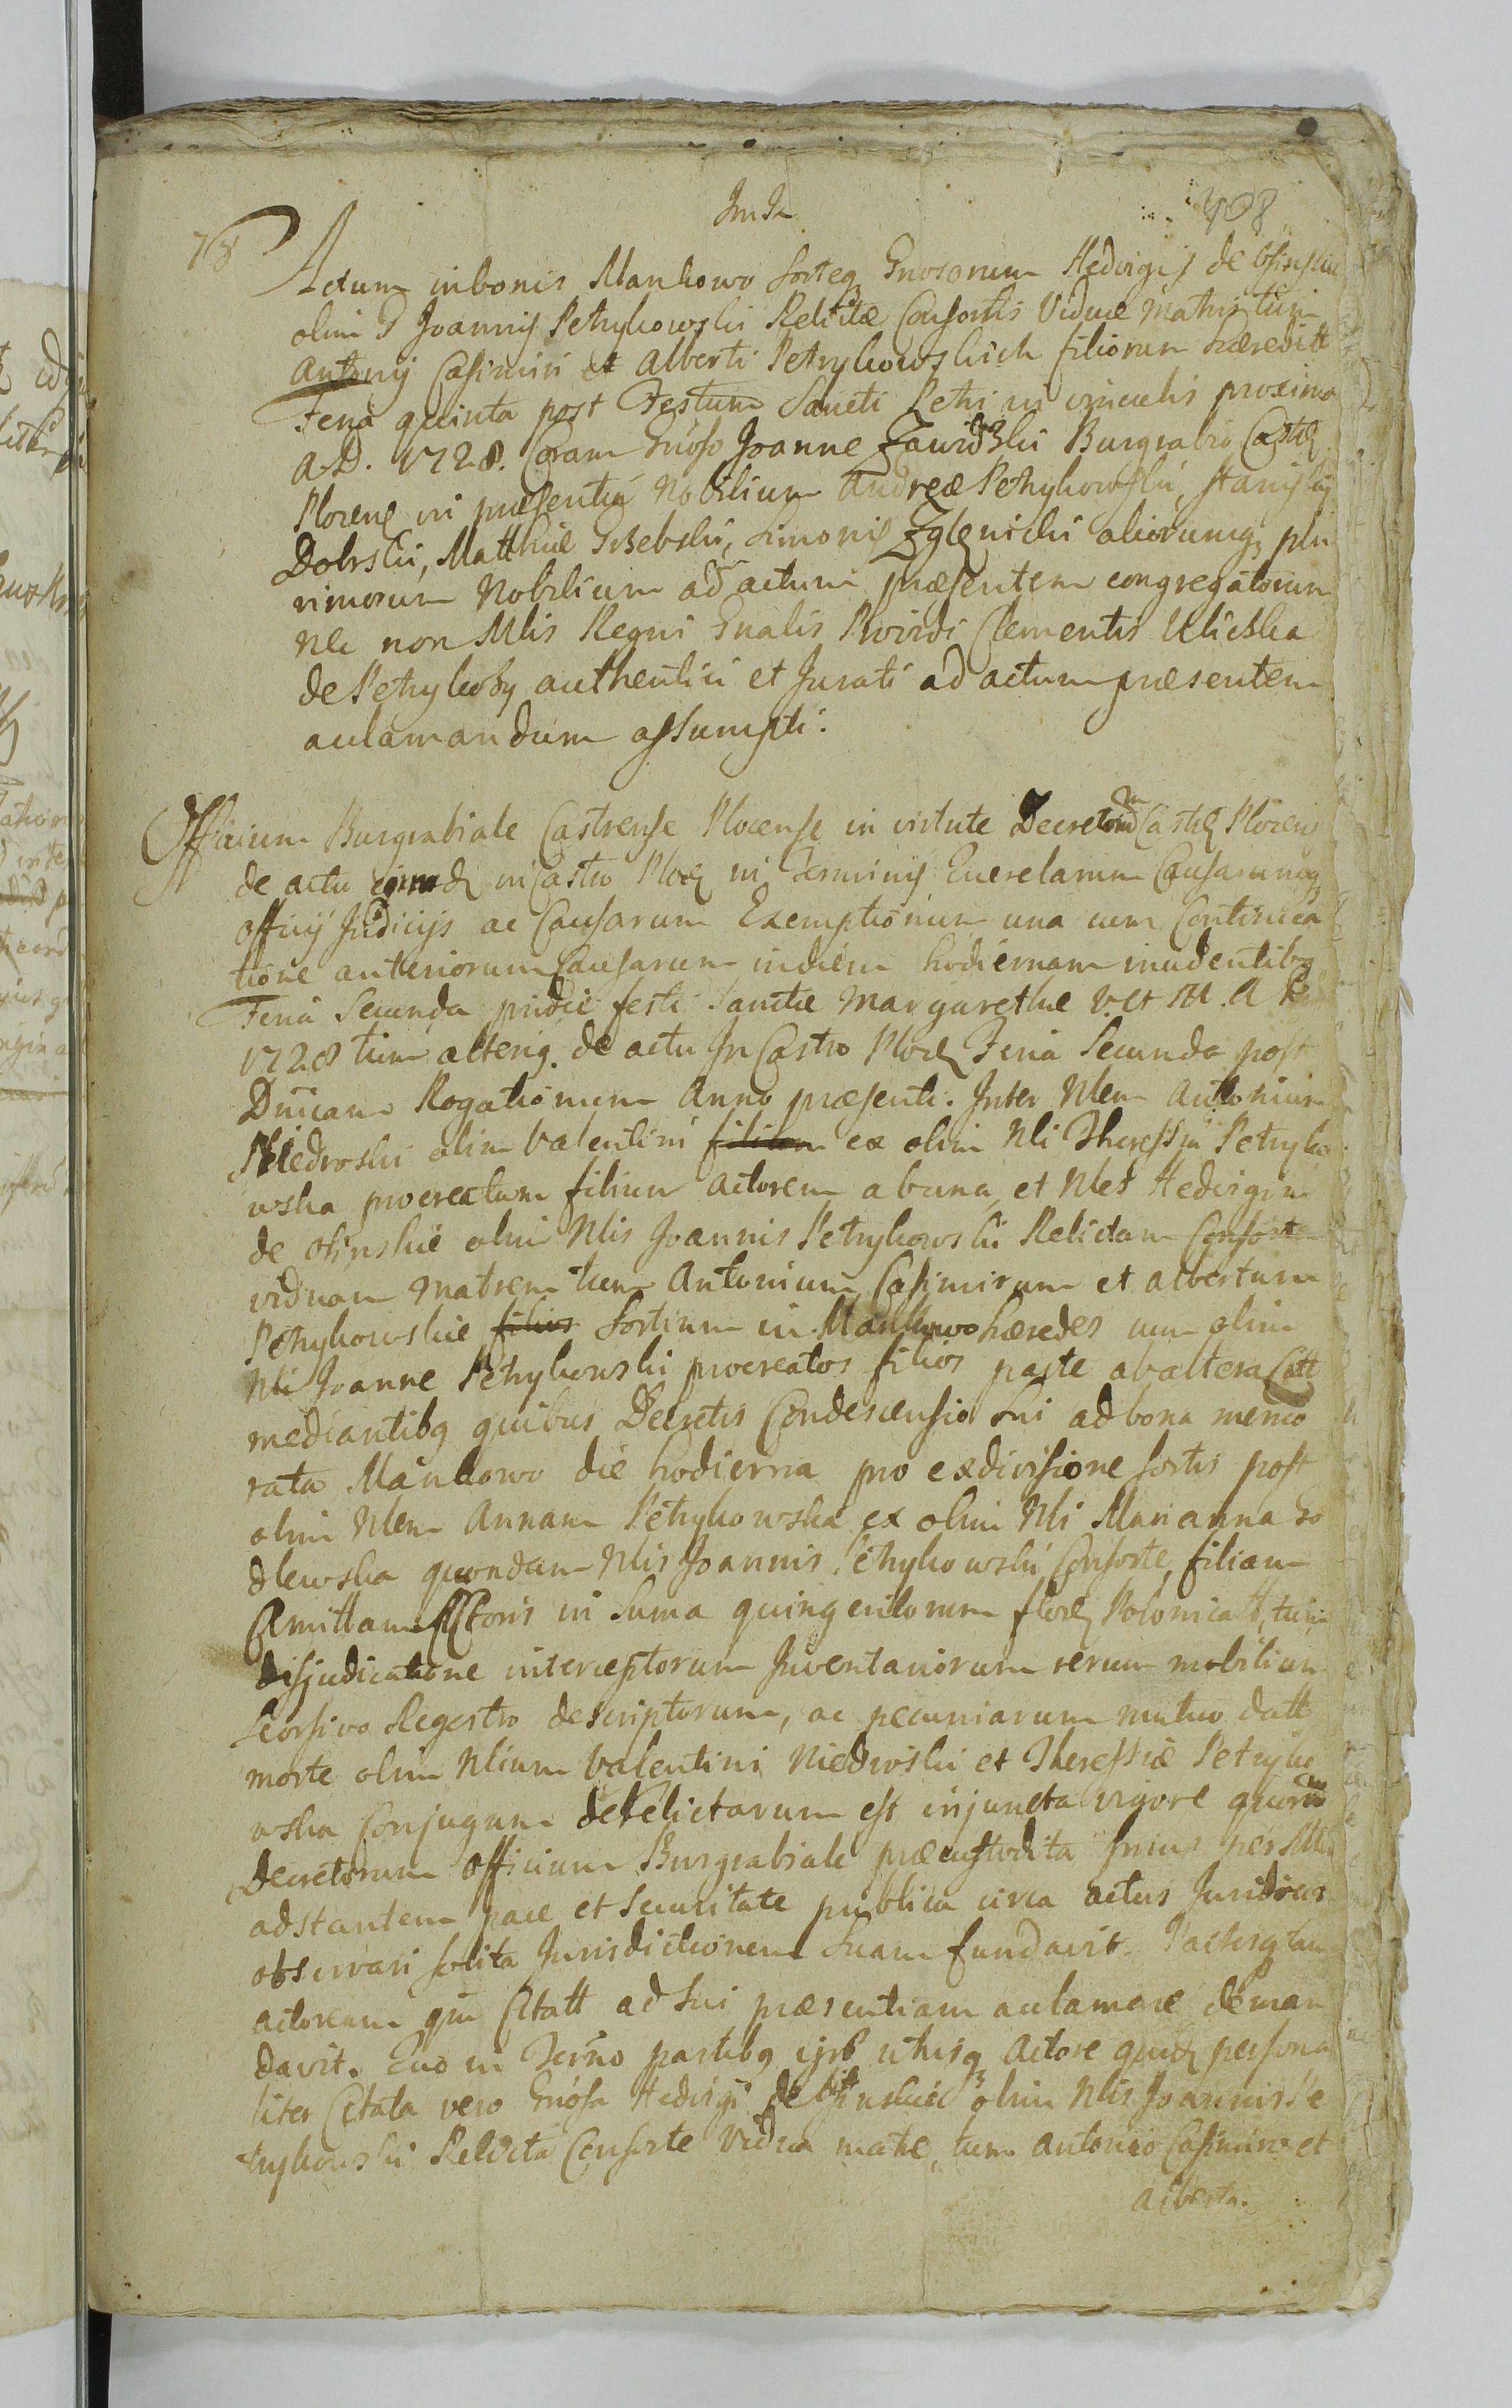 408
78
Actum in bonis Mankowo sorteq Gnosorum Hedvigis de
olim G Joannis Petrykowski Relictæ Consortis Viduæ Matris tum
Antonij Casimiri et Alberti Petrykowskich filiorum hæredit
Feria quinta post Festum Sancti Petri in vinculis proxima
A.D. 1728. Coram Gnoso Joanne Zawidzki Burgrabio Castr
Plocens in præsentia Nobilium Andreæ Petrykowski, Stanislaj
Dobrski, Matthiæ, Simonis Zglenicki aliorumq plu
rimorum Nobilium ad actum præsentem congregatorum
nec non Mlis Regni Gnalis Providi Clementis Uliczka
de Petrykozy authentici et Jurati ad actum præsentem
aclamandum assumpti.
Officium Burgrabiale Castrense Plocense in virtute Decretorum Castr Plocens
de actu in Castro Ploc in Terminis Querelarum Causarumq
officij Judicijs ac Causarum Exemptionum una cum Continua
tione anteriorum Causarum in diem hodiernam incidentibq
Feria Secunda pridie festi Sanctæ Margarethæ V. et M. A
1728 tum alteriq. de actu In Castro Ploc Feria Secunda post
Dnicam Rogationum Anno præsenti. Inter Nlem Antonium
Niedroski olim Valentini filium ex olim Nli Theressia Petryko
wska procreatum filium actorem ab una, et Nles Hedvigim
de olim Nlis Joannis Petrykowski Relictam Consorte
viduam matrem tum Antonium, Casimirum et Albertum
Petrykowskie filios Sortium in Mankowo hæredes cum olim
Nli Joanne Petrykowski procreatos filios parte ab altera Citt
mediantibq quibus Decretis Condescensio sui ad bona memo
rata Mankowo die hodierna pro exdivisione sortis post
olim Nlem Annam Petrykowska ex olim Nli Marianna Go
dlewska quondam Nlis Joannis Petrykowski Consorte, filiam
Amittam Actoris in Suma quingentorum flor Polonicalt, tum
disjudicatione interceptorum Inventariorum rerum mobilium
Seorsivo Regestro descriptorum, ac pecuniarum mutuo datt
morte olim Nlium Valentini Niedroski et Theressiæ Petryko
wska Conjugum derelictarum est injuncta vigore quorum
Decretorum Officium Burgrabiale præcustodita prius per Mlem
adstantem pace et securitate publica circa actus Juridicos
observari solita Jurisdictionem Suam fundavit. Partesq tam
actoream qm Citatt ad sui præsentiam aclamare deman
davit. Quo in Terno partibq ijsd utrisq Actore quid persona
liter Citata vero Gnosa Hedvigi de olim Nlis Joannis Pe
trykowski Relicta Consorte Vidua matre, tum Antonio Casimiro et
Alberto.